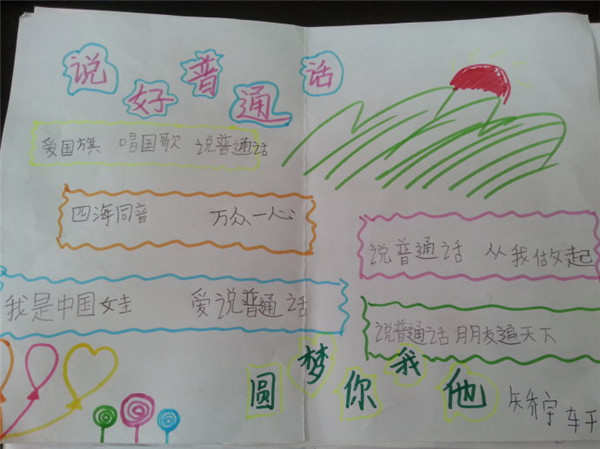 说好普通话
爱国旗 唱国歌 说普通话
四海同音 万众一心
我是中国娃 爱说普通话
说普通话 从我做起
说普通话朋友遍天下
圆梦你我他